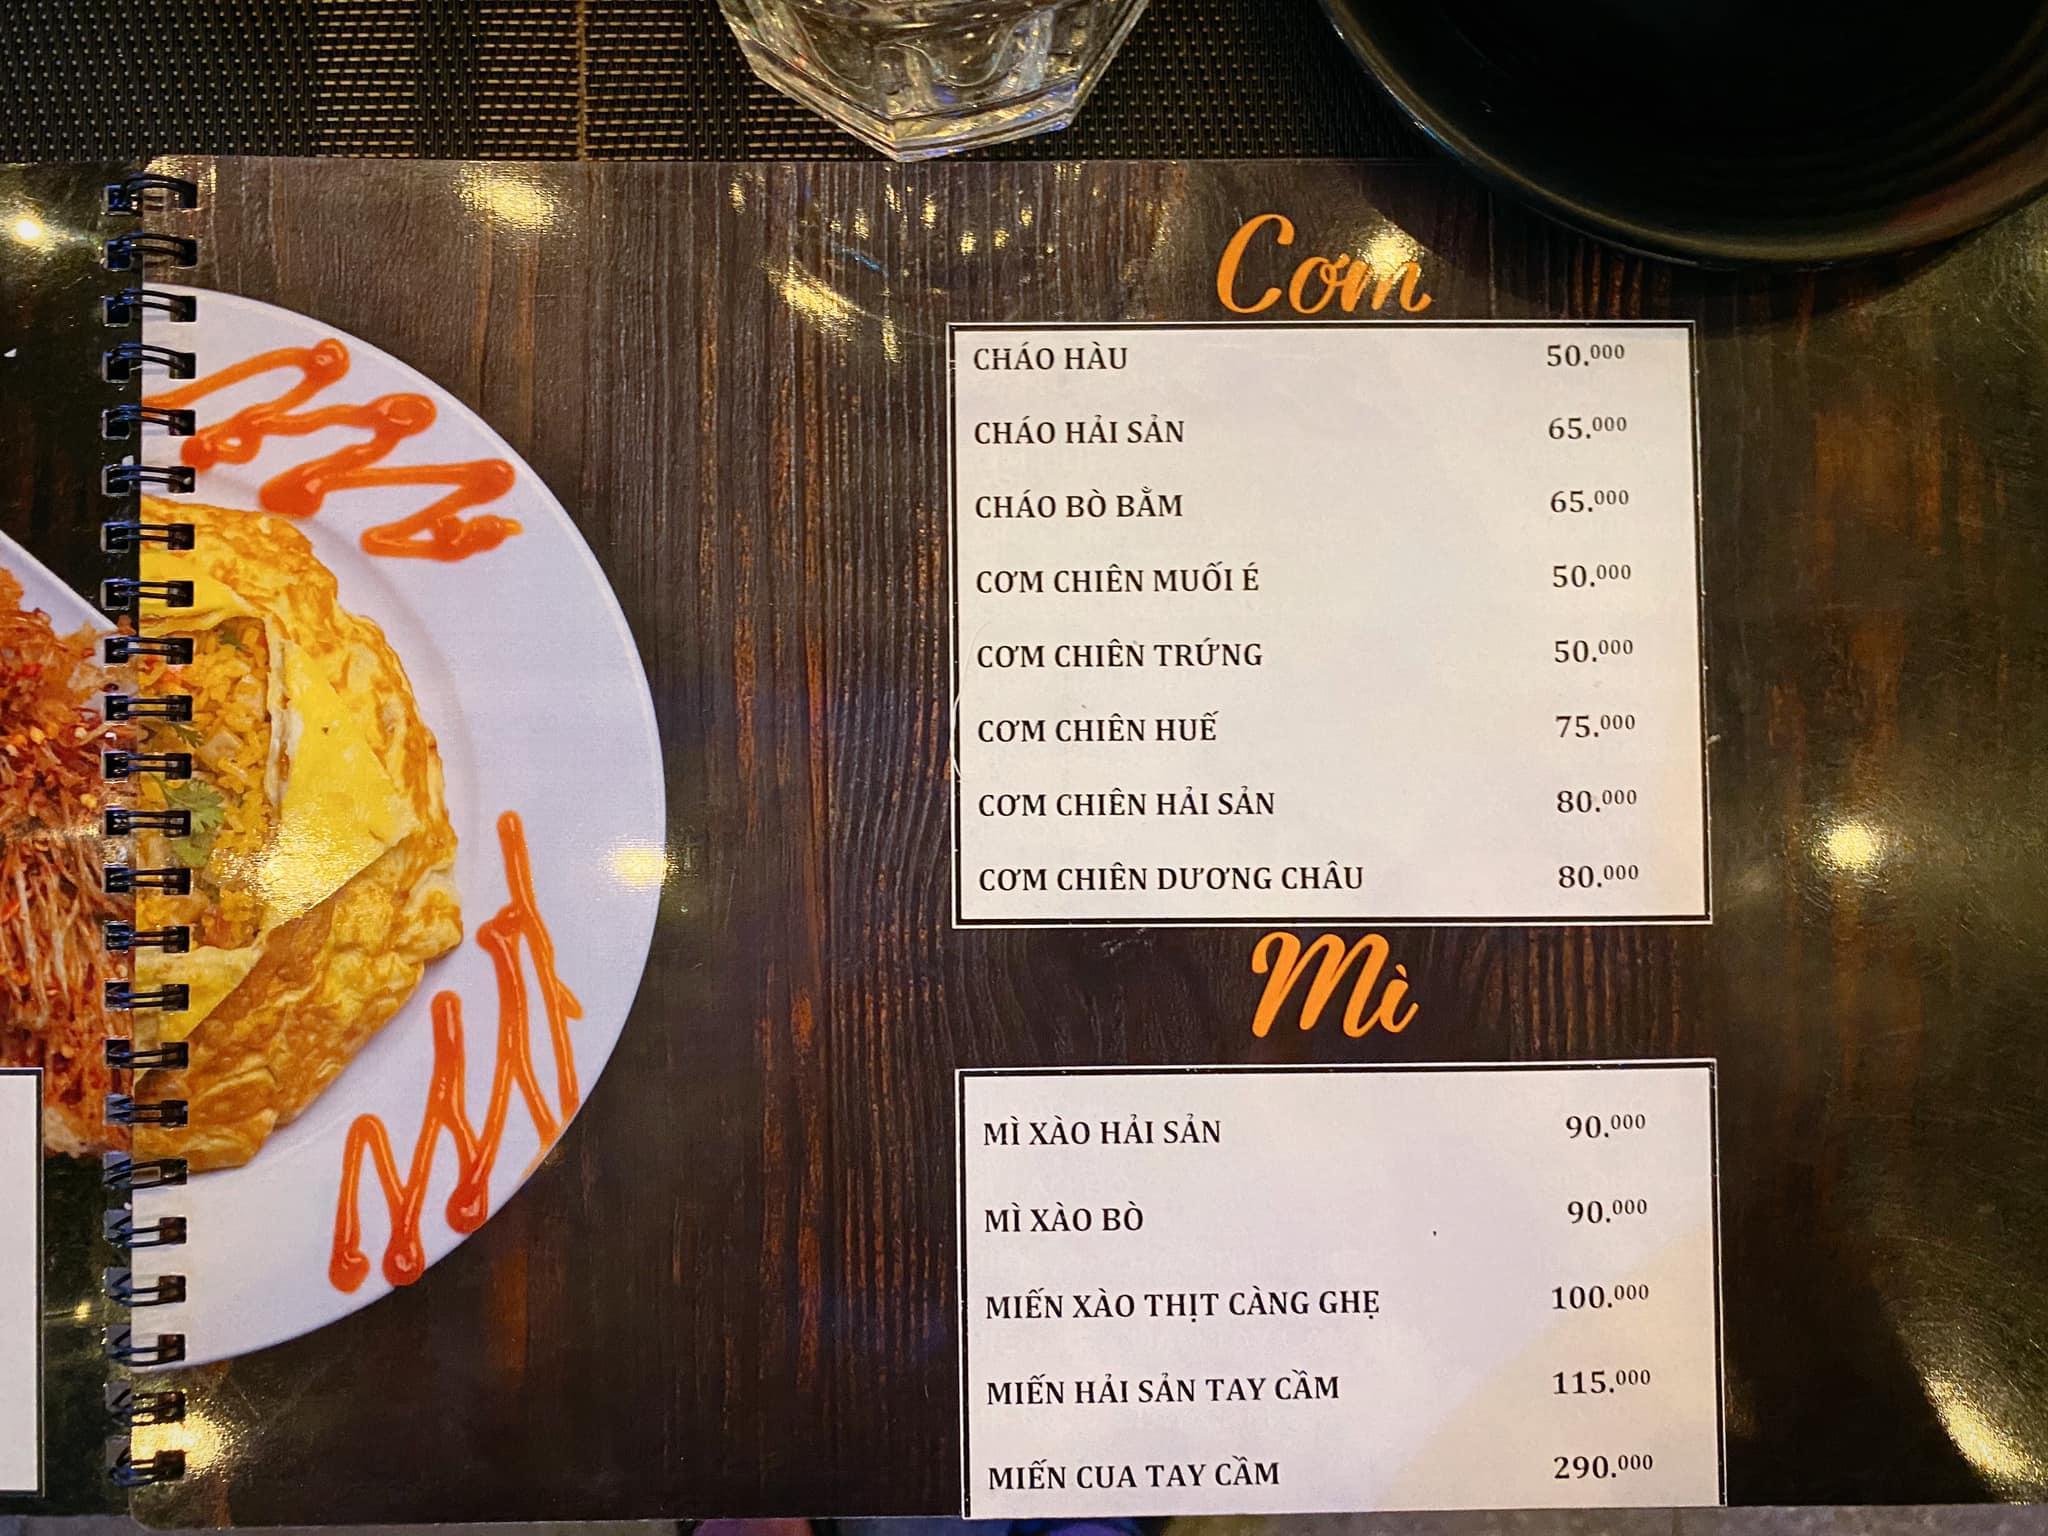 Cơm
CHÁO HÀU 50.000
CHÁO HẢI SẢN 65.000
CHÁO BÒ BẰM 65.000
CƠM CHIÊN MUỐI É 50.000
CƠM CHIÊN TRỨNG 50.000
CƠM CHIÊN HUẾ 75.000
CƠM CHIÊN HẢI SẢN 80.000
CƠM CHIÊN DƯƠNG CHÂU 80.000
Mì
MÌ XÀO HẢI SẢN 90.000
MÌ XÀO BÒ 90.000
MIẾN XÀO THỊT CÀNG GHẸ 100.000
MIẾN HẢI SẢN TAY CẦM 115.000
MIẾN CUA TAY CẦM 290.000